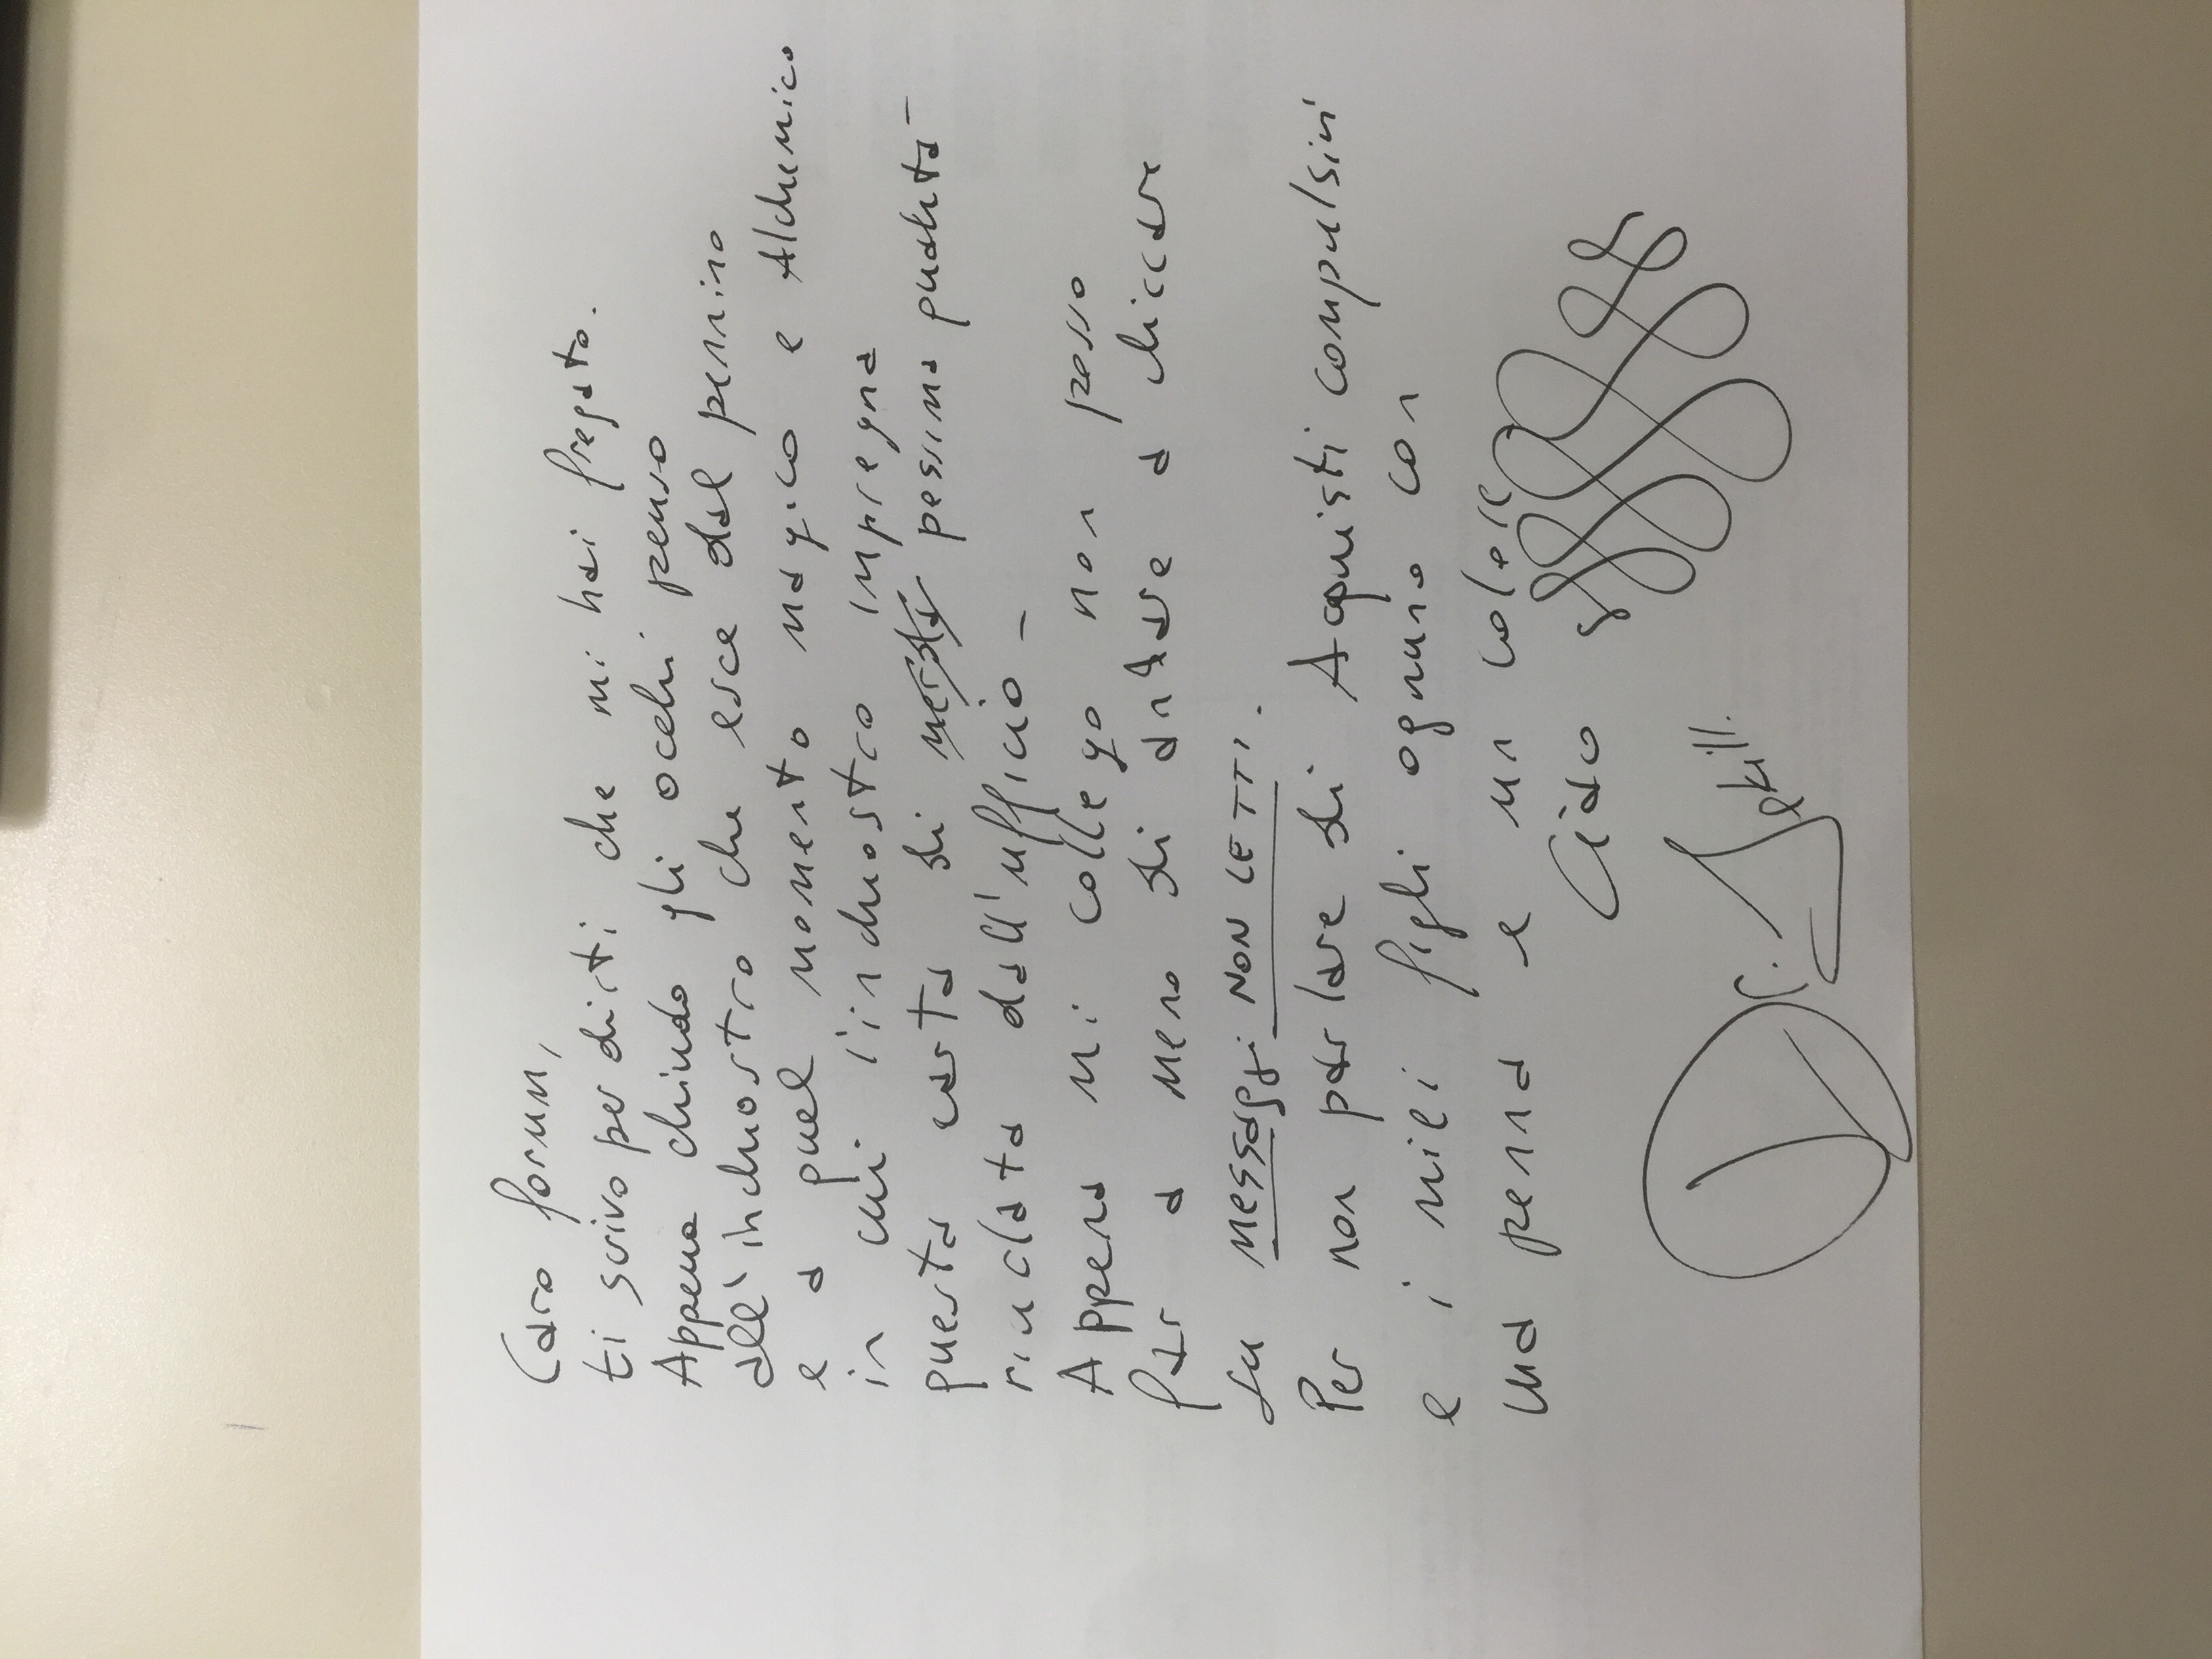 Caro forum,
ti scrivo per dirti che mi hai fregato.
Appena chiudo gli occhi penso
all'inchiostro che esce dal pennino
e a quel momento magico e Alchemico
in cui l'inchiostro impregna
questa carta di pessima qualità -
riciclata dall'ufficio -
Appena mi collego non posso
far a meno di andare a cliccare
su MESSAggi NON LETTI.
Per non parlare di Acquisti compulsivi
e i mili figli ognuno con
una penna e un colore
Ciao
Dr. Jekill.